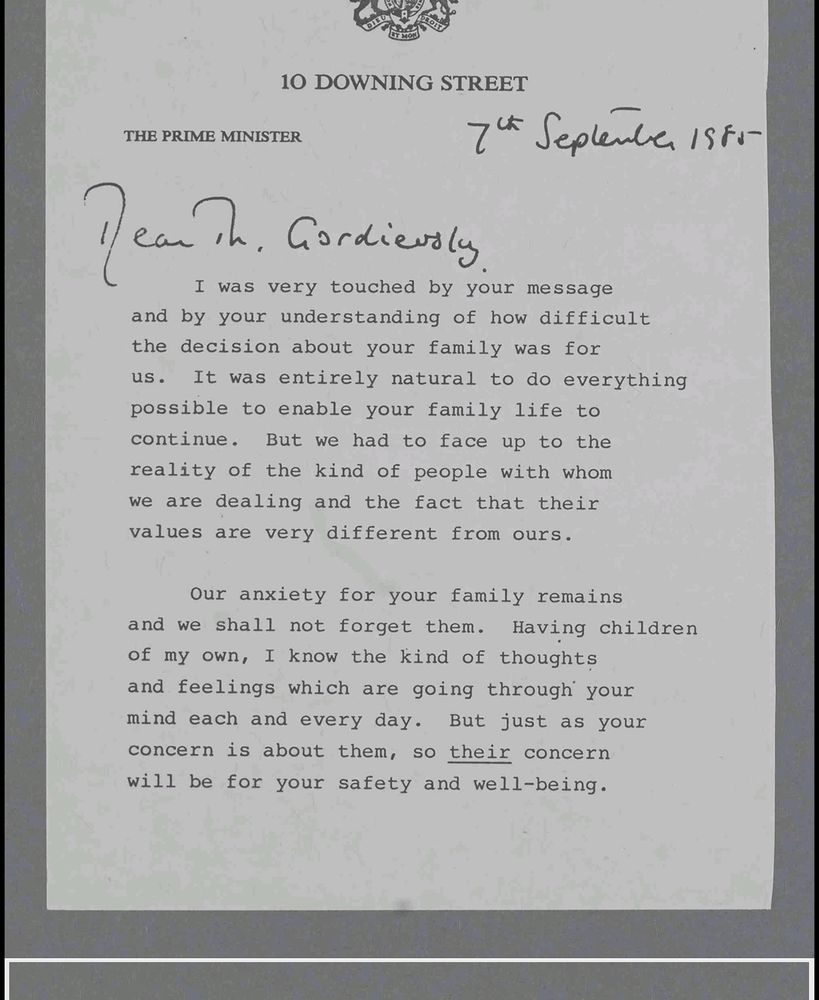 DIEU ET MON DROIT
10 DOWNING STREET
THE PRIME MINISTER
7th September 1985
Dear Mr. Gordievsky,
I was very touched by your message
and by your understanding of how difficult
the decision about your family was for
us. It was entirely natural to do everything
possible to enable your family life to
continue. But we had to face up to the
reality of the kind of people with whom
we are dealing and the fact that their
values are very different from ours.
Our anxiety for your family remains
and we shall not forget them. Having children
of my own, I know the kind of thoughts
and feelings which are going through your
mind each and every day. But just as your
concern is about them, so their concern
will be for your safety and well-being.